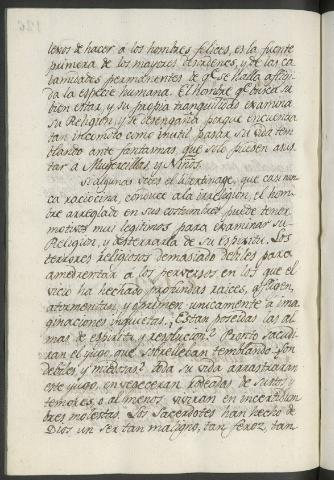 lexos de hacer á los hombres felices, es la fuente
primera de los mayores desordenes, y de las ca
lamidades permanentes de qe. se halla afligi
da la especie humana. El hombre qe. busca su
bien estar, y su propia tranquilidad examina
su Religion, y se desengaña porque encuentra
tan incomodo como inutil pasar su vida tem
blando ante fantasmas, que solo pueden asus
tar á Mugercillas, y Niños.
Si algunas veces el libertinage, que casi nun
ca raciocina, conduce á la irreligion, el hom
bre arreglado en sus costumbres puede tener
motivos mui legitimos para examinar su
Religion, y desterrarla de su espiritu. Los
terrores religiosos demasiado debiles para
amedrentar á los perversos en los que el
vicio ha hechado profundas raices, afligen,
atormentan, y oprimen unicamente á ima
ginaciones inquietas. ¿Estan poseidas las al
mas de espiritu y resolucion? Pronto sacudi
ran el yugo, que sobrellevan temblando. ¿Son
debiles, y miedosas? toda su vida arrastrarán
este yugo, envegeceran rodeadas de sustos, y
temores, ó al menos viviran en incertidum
bres molestas. Los Sacerdotes han hecho de
Dios un ser tan maligno, tan feroz, tan